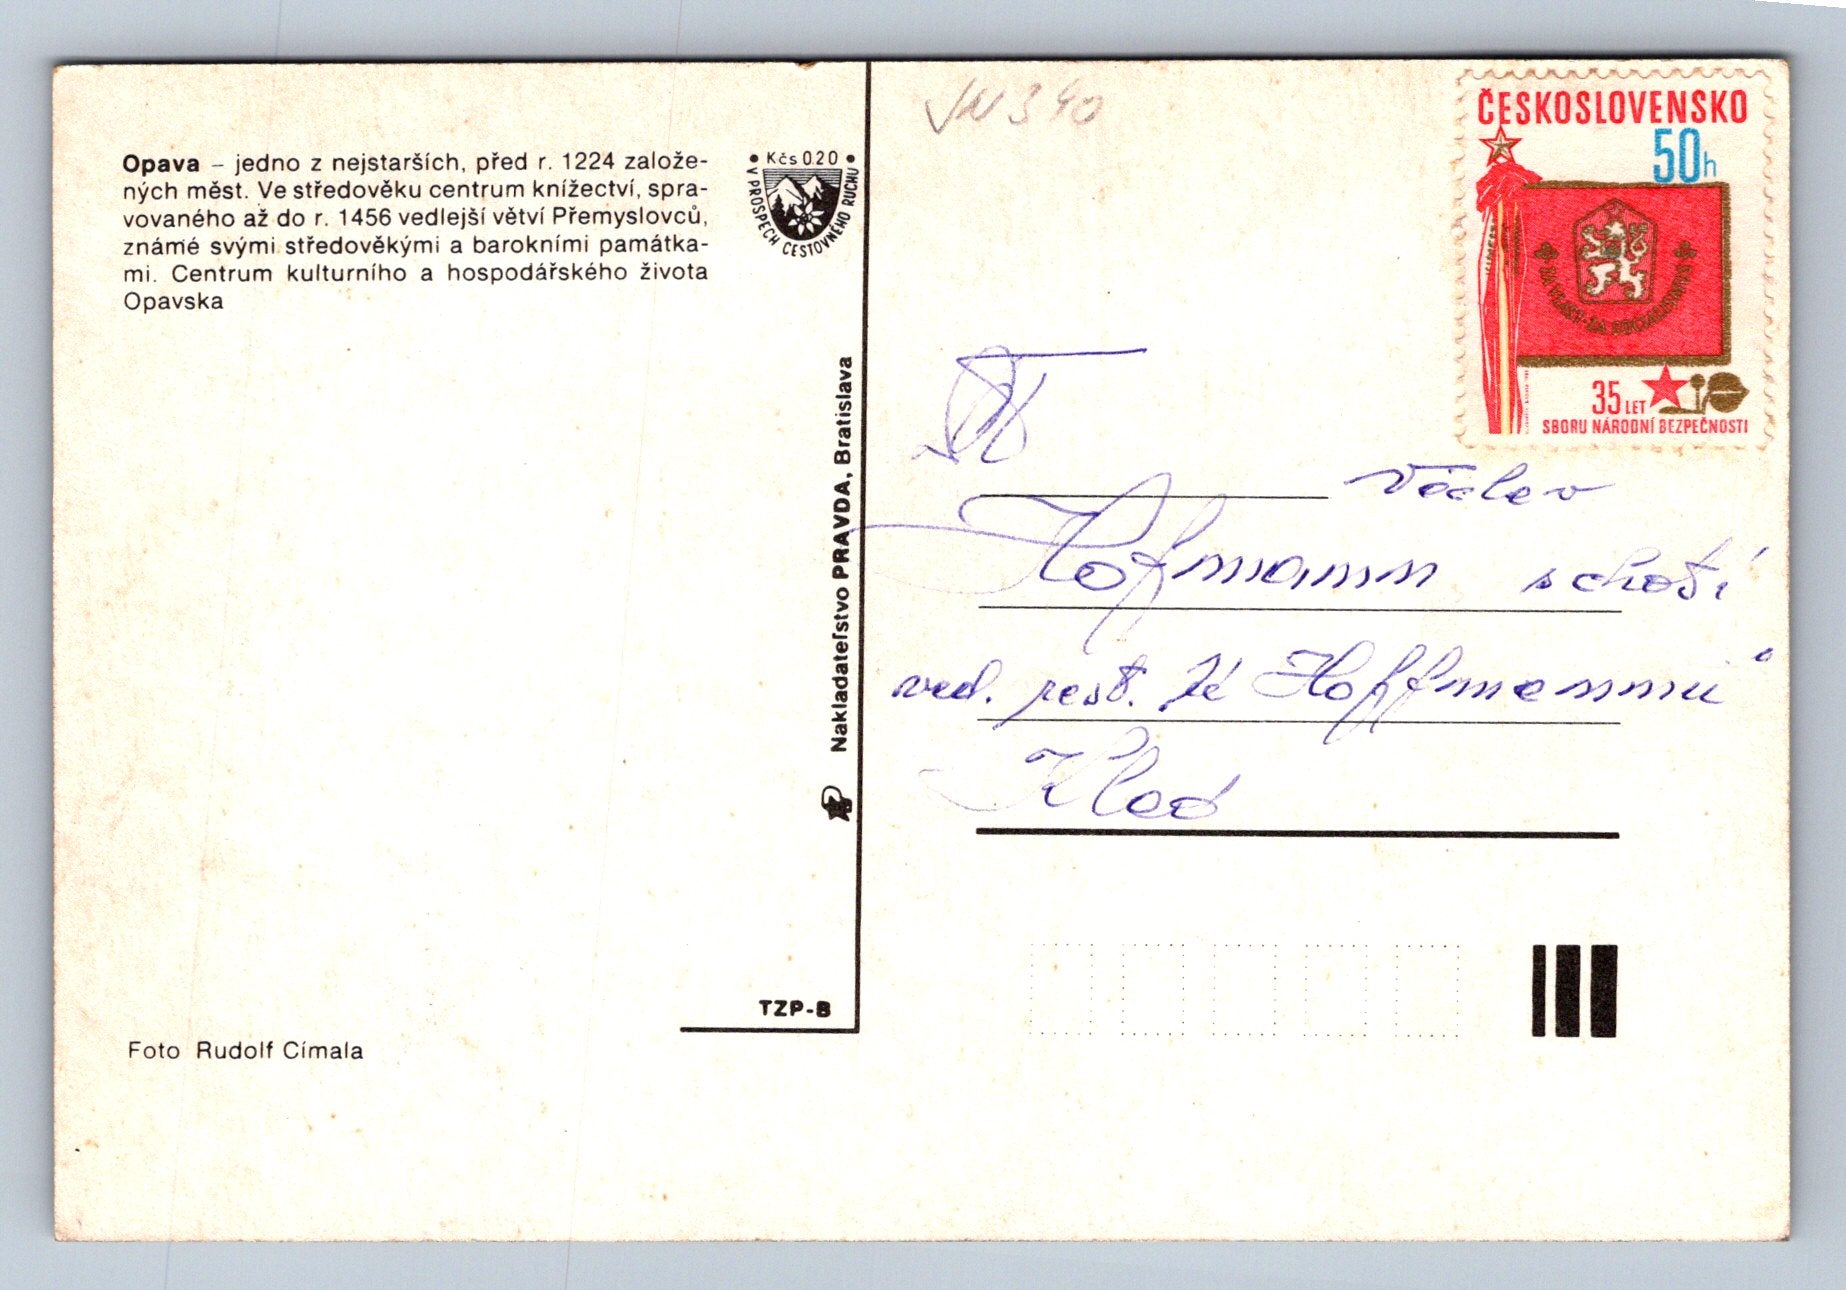 Opava – jedno z nejstarších, před r. 1224 založe-
ných měst. Ve středověku centrum knížectví, spra-
vovaného až do r. 1456 vedlejší větví Přemyslovců,
známé svými středověkými a barokními památka-
mi. Centrum kulturního a hospodářského života
Opavska
Kčs 0.20
V PROSPĚCH CESTOVNÉHO RUCHU
Nakladateľstvo PRAVDA, Bratislava
TZP-B
Foto Rudolf Címala
ČESKOSLOVENSKO
50h
ZA VLAST · ZA SOCIALISMUS
35 LET
SBORU NÁRODNÍ BEZPEČNOSTI
Václav
Hofmann s chotí
ved. rest. Hoffmannů